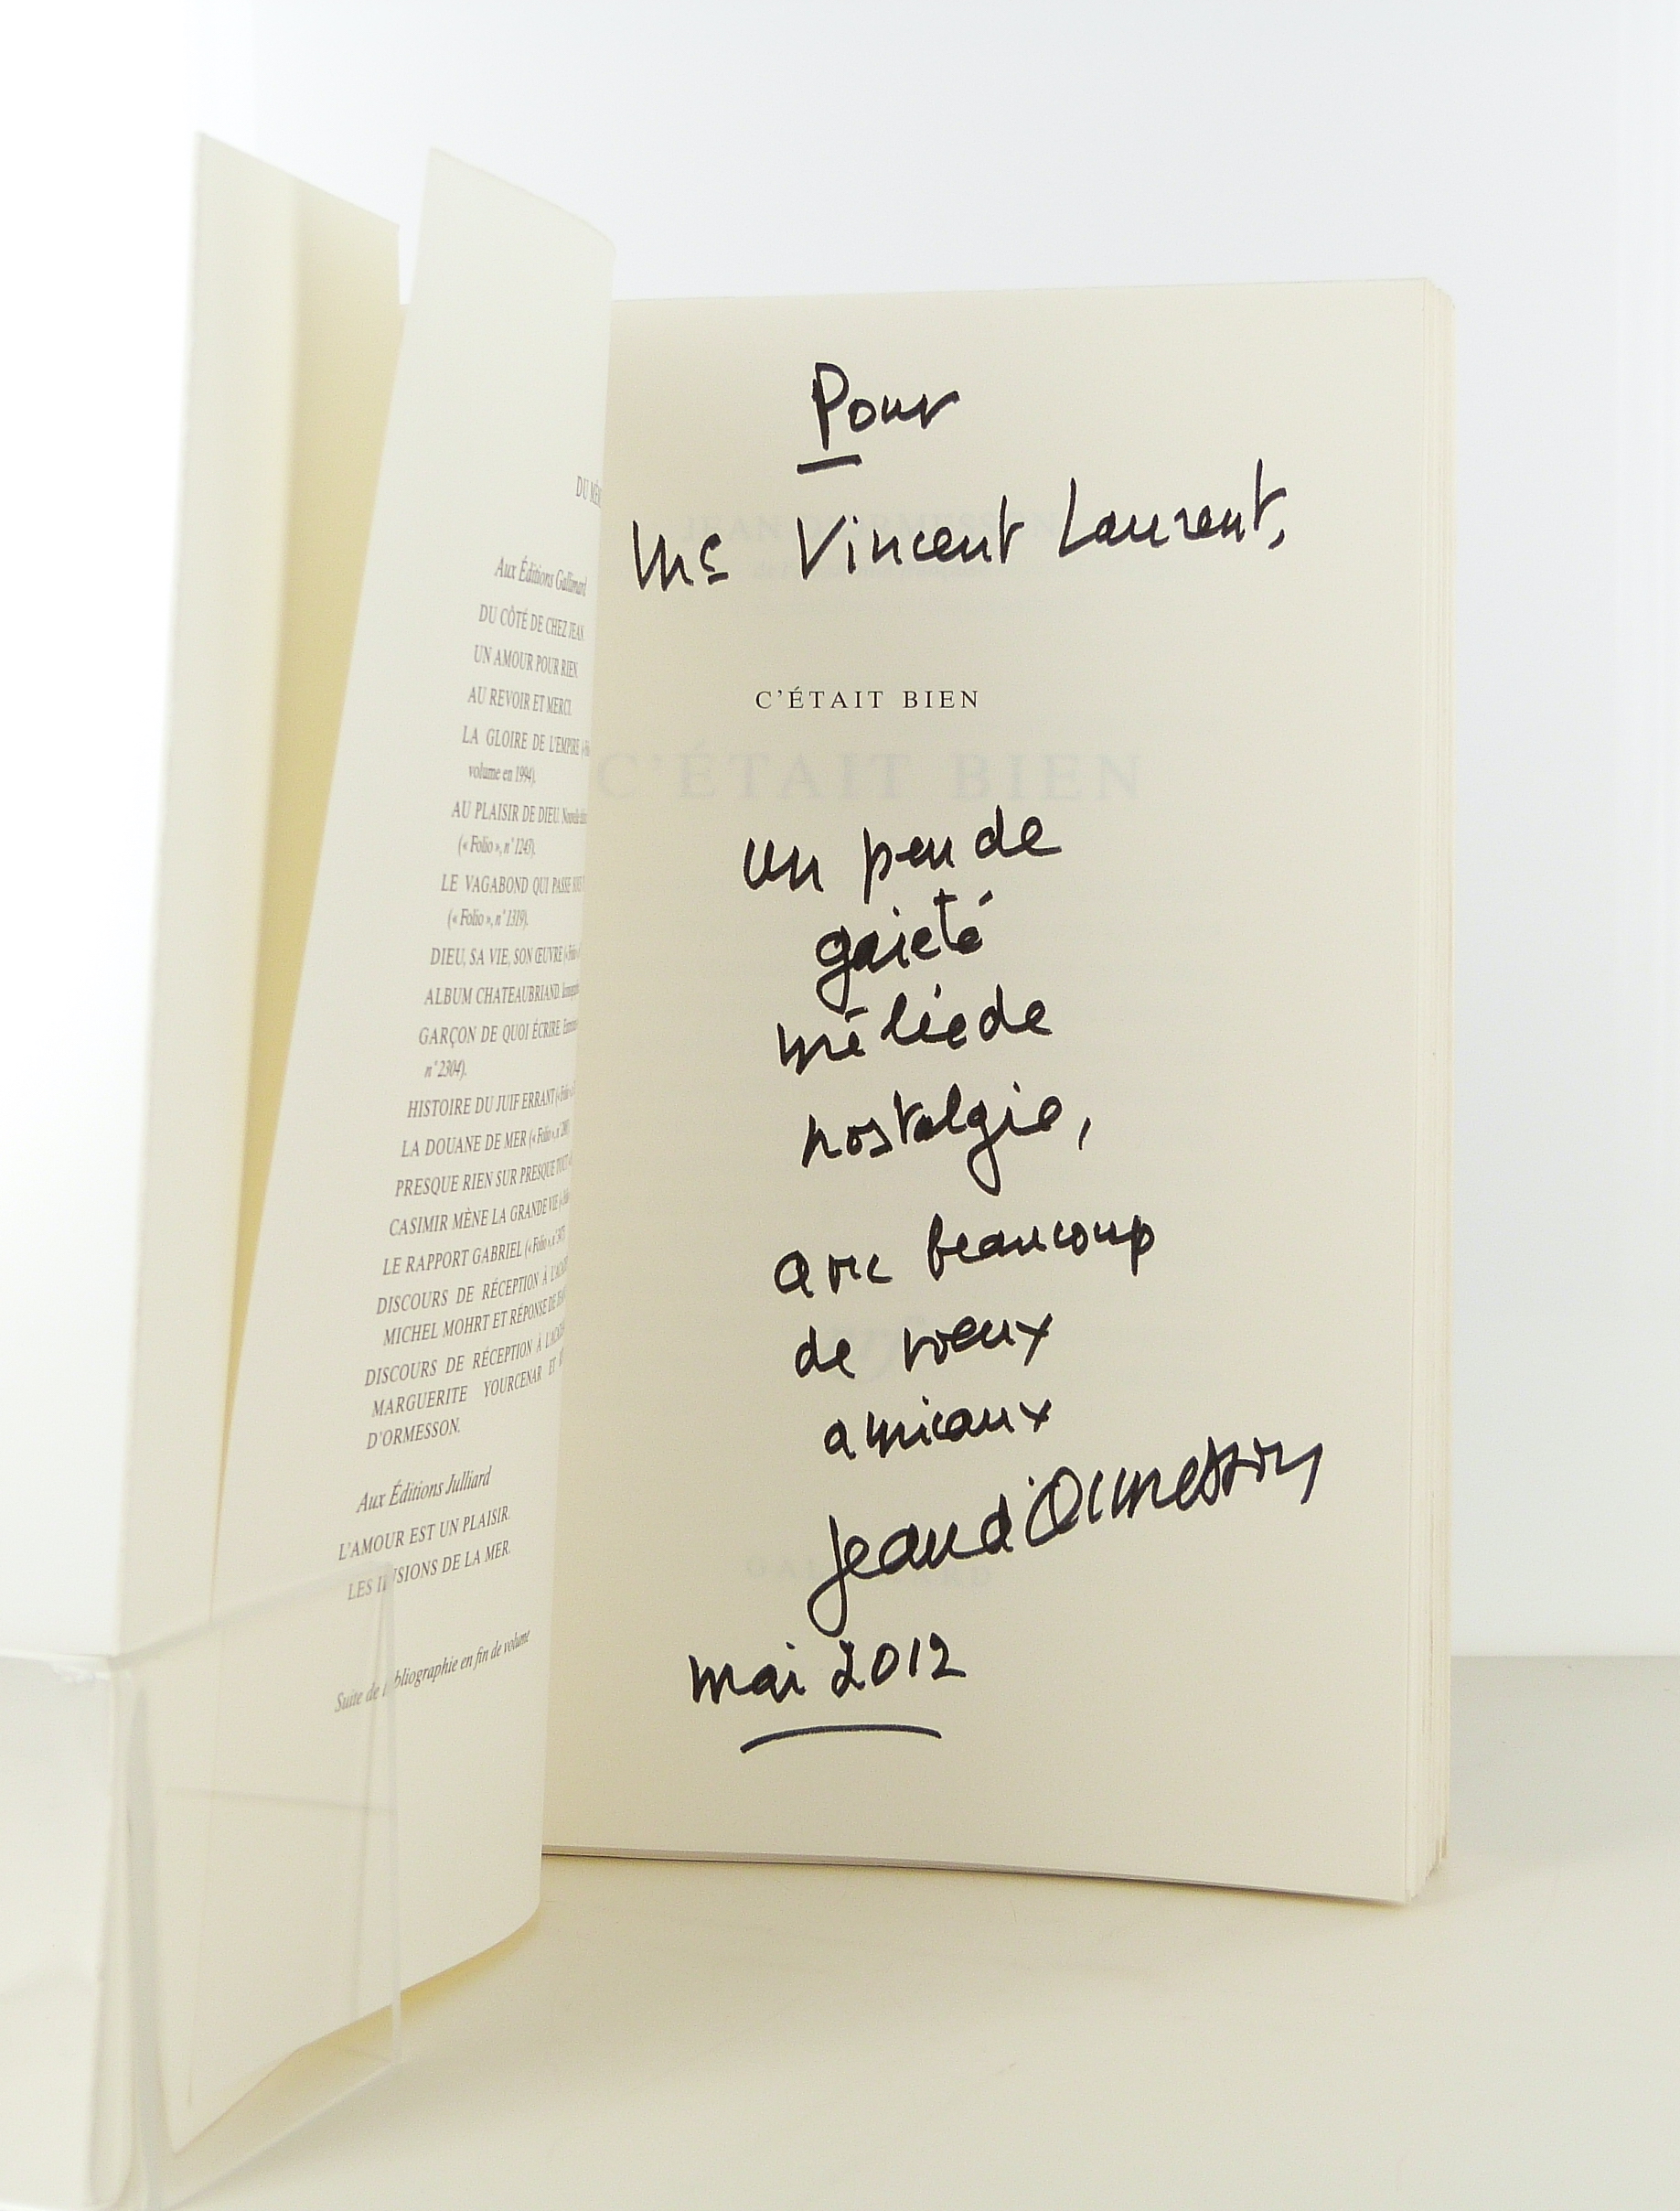 DU
Aux Éditions Gallimard
DU CÔTÉ DE CHEZ JEAN
UN AMOUR POUR RIEN
AU REVOIR ET MERCI.
LA GLOIRE DE L'EMPIRE
volume en 1994).
AU PLAISIR DE DIEU.
(« Folio », n° 1243).
LE VAGABOND QUI PASSE
(« Folio », n° 1319).
DIEU, SA VIE, SON ŒUVRE
ALBUM CHATEAUBRIAND.
GARÇON DE QUOI ÉCRIRE.
n° 2304).
HISTOIRE DU JUIF ERRANT
LA DOUANE DE MER
PRESQUE RIEN SUR PRESQUE TOUT
CASIMIR MÈNE LA GRANDE VIE
LE RAPPORT GABRIEL
DISCOURS DE RÉCEPTION À
MICHEL MOHRT ET RÉPONSE DE
DISCOURS DE RÉCEPTION À
MARGUERITE YOURCENAR ET
D'ORMESSON.
Aux Éditions Julliard
L'AMOUR EST UN PLAISIR.
LES ILLUSIONS DE LA MER.
Suite de la bibliographie en fin de volume
Pour
Vincent Laurent,
C'ÉTAIT BIEN
C'ÉTAIT BIEN
un peu de
gaieté
mêlée de
nostalgie,
avec beaucoup
de vœux
amicaux
Jean d'Ormesson
mai 2012